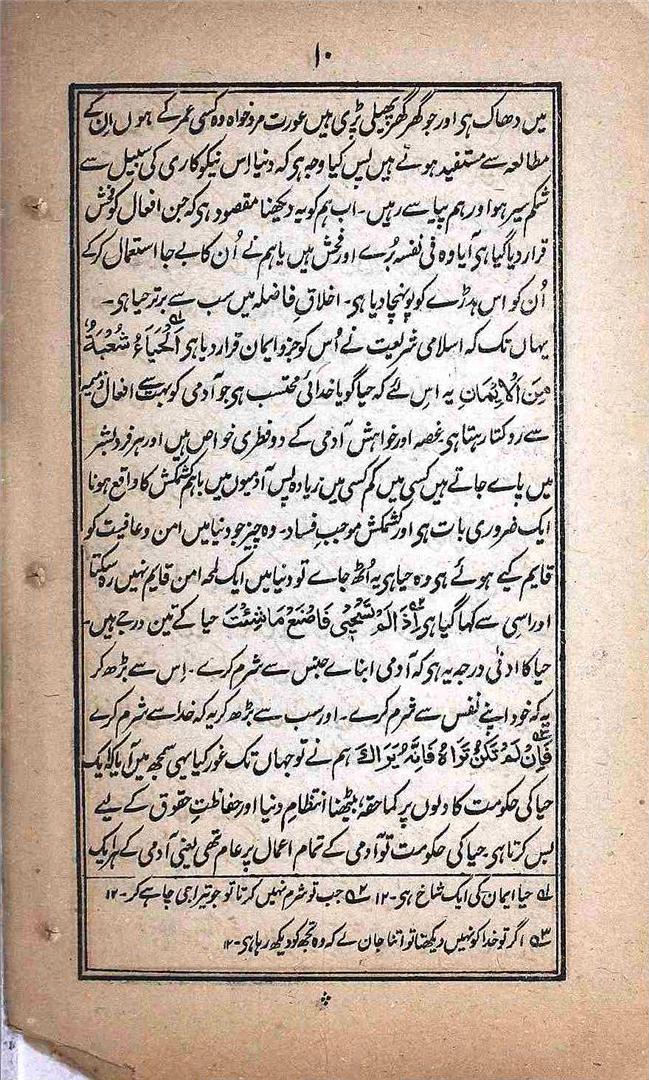 ۱۰
میں دھاک ہی اور جو گھر گھر پھیلی پڑی ہیں عورت مرد خواہ وہ کسی عمر کے ہوں اِن کے
مطالعہ سے مستفید ہوئے ہیں پس کیا وجہ ہی کہ دنیا اس نیکوکاری کی سبیل سے
شکم سیر ہو اور ہم پیاسے رہیں۔ اب ہم کو یہ دیکھنا مقصود ہی کہ جن افعال کو فحش
قرار دیا گیا ہی آیا وہ فی نفسہ بُرے اور فحش ہیں یا ہم نے اُن کا بے جا استعمال کرکے
اُن کو اس ہدڑے کو پونہچا دیا ہی۔ اخلاق فاضلہ میں سب سے برتر حیا ہی۔
یہاں تک کہ اسلامی شریعت نے اُس کو جزو ایمان قرار دیا ہی اَلْحَیَاءُ شُعْبَةٌ ۵۱
مِنَ الْاِیْمَانِ یہ اس لئے کہ حیا گویا خدائی محتسب ہی جو آدمی کو بہت سے افعال ذمیمہ
سے روکتا رہتا ہی غصہ اور خواہش آدمی کے دو فطری خواص ہیں اور ہر فرد بشر
میں پاے جاتے ہیں کسی میں کم کسی میں زیادہ پس آدمیوں میں باہم کشمکش کا واقع ہونا
ایک ضروری بات ہی اور کشمکش موجب فساد۔ وہ چیز جو دنیا میں امن و عافیت کو
قایم کیے ہوئے ہی وہ حیا ہی یہ اُٹھ جاے تو دنیا میں ایک لمحہ امن قایم نہیں رہ سکتا
اور اسی سے کہا گیا ہی اِذَا لَمْ تَسْتَحْیِ فَاصْنَعْ مَا شِئْتَ ۵۲ حیا کے تین درجے ہیں۔
حیا کا ادنٰی درجہ یہ ہی کہ آدمی ابناے جنس سے شرم کرے۔ اِس سے بڑھ کر
یہ کہ خود اپنے نفس سے شرم کرے۔ اور سب سے بڑھ کر یہ کہ خدا سے شرم کرے
فَاِنْ لَمْ تَکُنْ تَرَاہُ فَاِنَّہٗ یَرَاكَ ۵۳ ہم نے تو جہاں تک غور کیا یہی سمجھ میں آیا کہ ایک
حیا کی حکومت کا دلوں پر کما حقہٗ بیٹھنا انتظام دنیا اور حفاظتِ حقوق کے لیے
بس کرتا ہی حیا کی حکومت تو آدمی کے تمام اعمال پر عام تھی یعنی آدمی کے ہر ایک
۵۱ حیا ایمان کی ایک شاخ ہی۔۱۲ ۵۲ جب تو شرم نہیں کرتا تو جو تیرا جی چاہے کر۔۱۲
۵۳ اگر تو خدا کو نہیں دیکھتا تو اتنا جان لے کہ وہ تجھ کو دیکھ رہا ہی۔۱۲